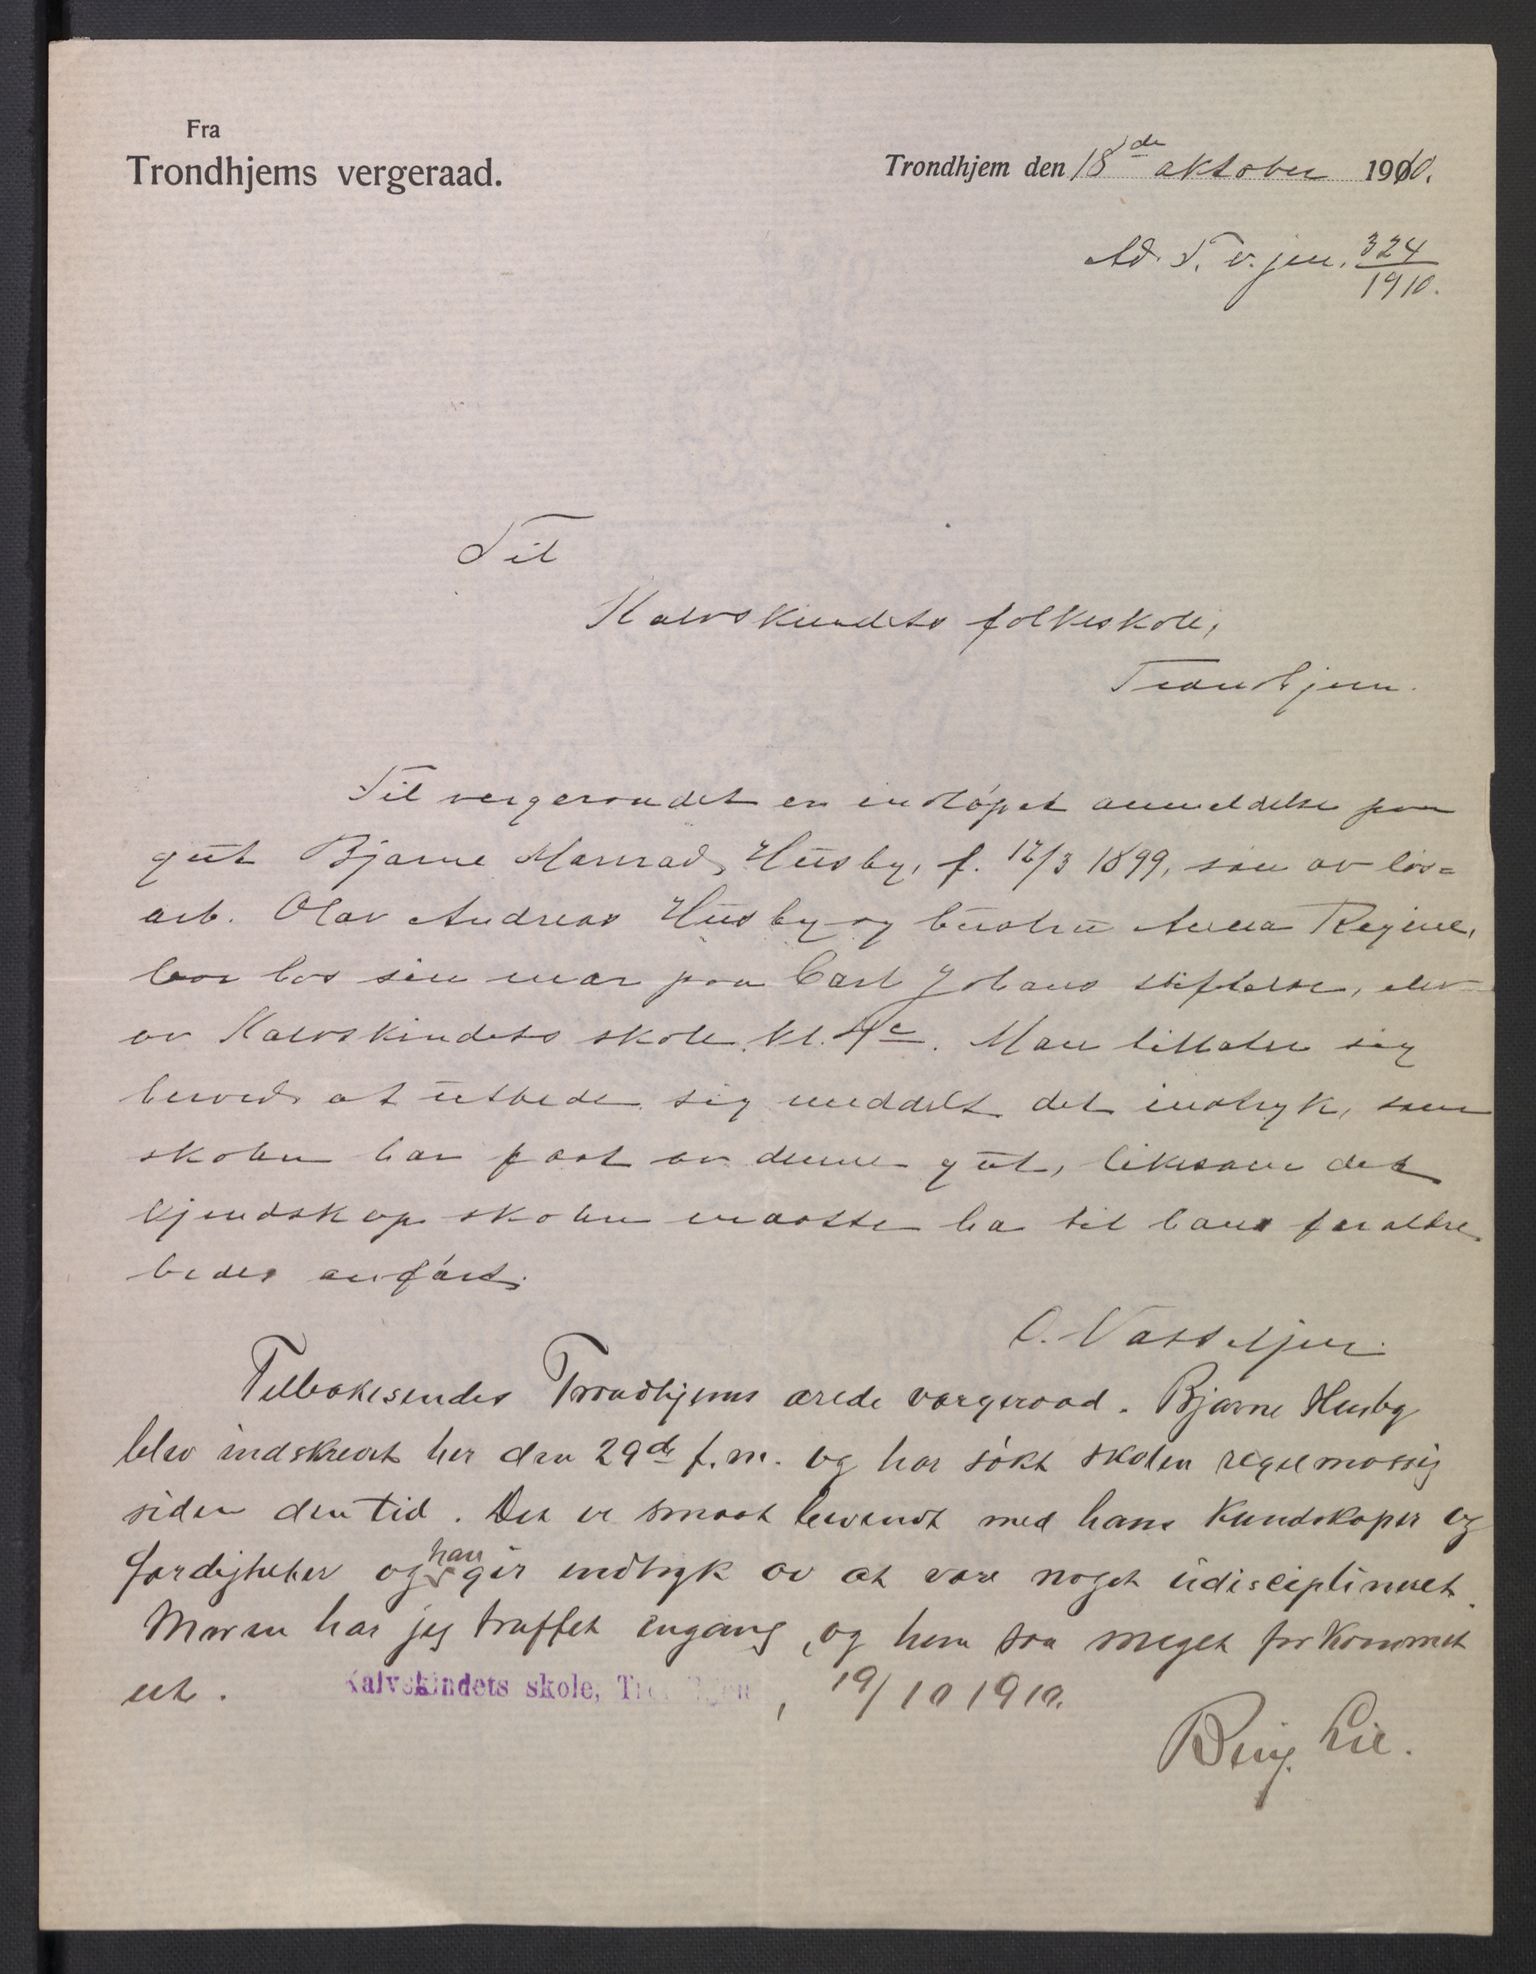 Fra
Trondhjems vergeraad.
Trondhjem den 18de oktober 1910.
Ad. T. v. jnr. 324/1910.
Til
Kalvskindets folkeskole,
Trondhjem.
Til vergeraadet er indløpet anmeldelse paa
gut Bjarne Husby, f. 12/3 1899, søn av løs=
arb. Olav Andreas Husby og hustru Anna Regine,
bor hos sin mor paa Carl Johans stiftelse, elev
av Kalvskindets skole, kl. 4c. Man tillater sig
herved at utbede sig meddelt det indtryk, som
skolen har faat av denne gut, likesom det
kjendskap skolen maatte ha til hans forældre
bedes anført.
O. Vatshjem.
Tilbakesendes Trondhjems ærede værgeraad. Bjarne Husby
blev indskrevet her den 29de f. m. og har søkt skolen regelmæssig
siden den tid. Det er smaat bevendt med hans kundskaper og
færdigheter og han gir indtryk av at være noget udisciplineret.
Moren har jeg truffet engang, og hun saa meget forkommet
ut. Kalvskindets skole, Trondhjem, 19/10 1910.
Benj. Lie.